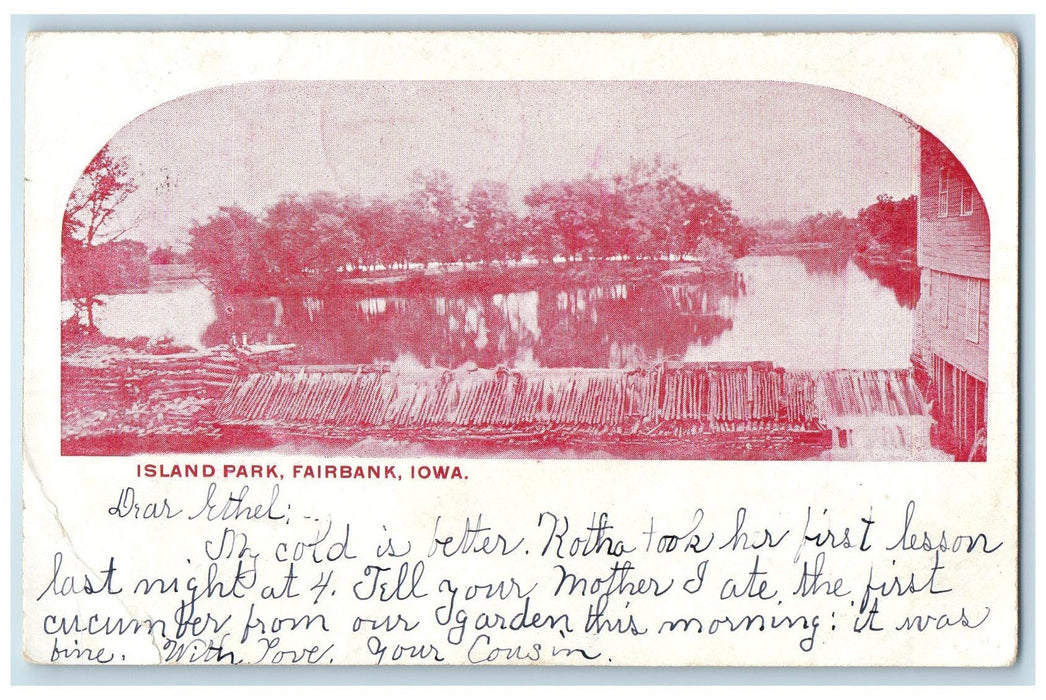 ISLAND PARK, FAIRBANK, IOWA.
Dear Ethel;
My cold is better. Kotha took her first lesson
last night at 4. Tell your Mother I ate the first
cucumber from our garden this morning: it was
fine. With Love. Your Cousin.